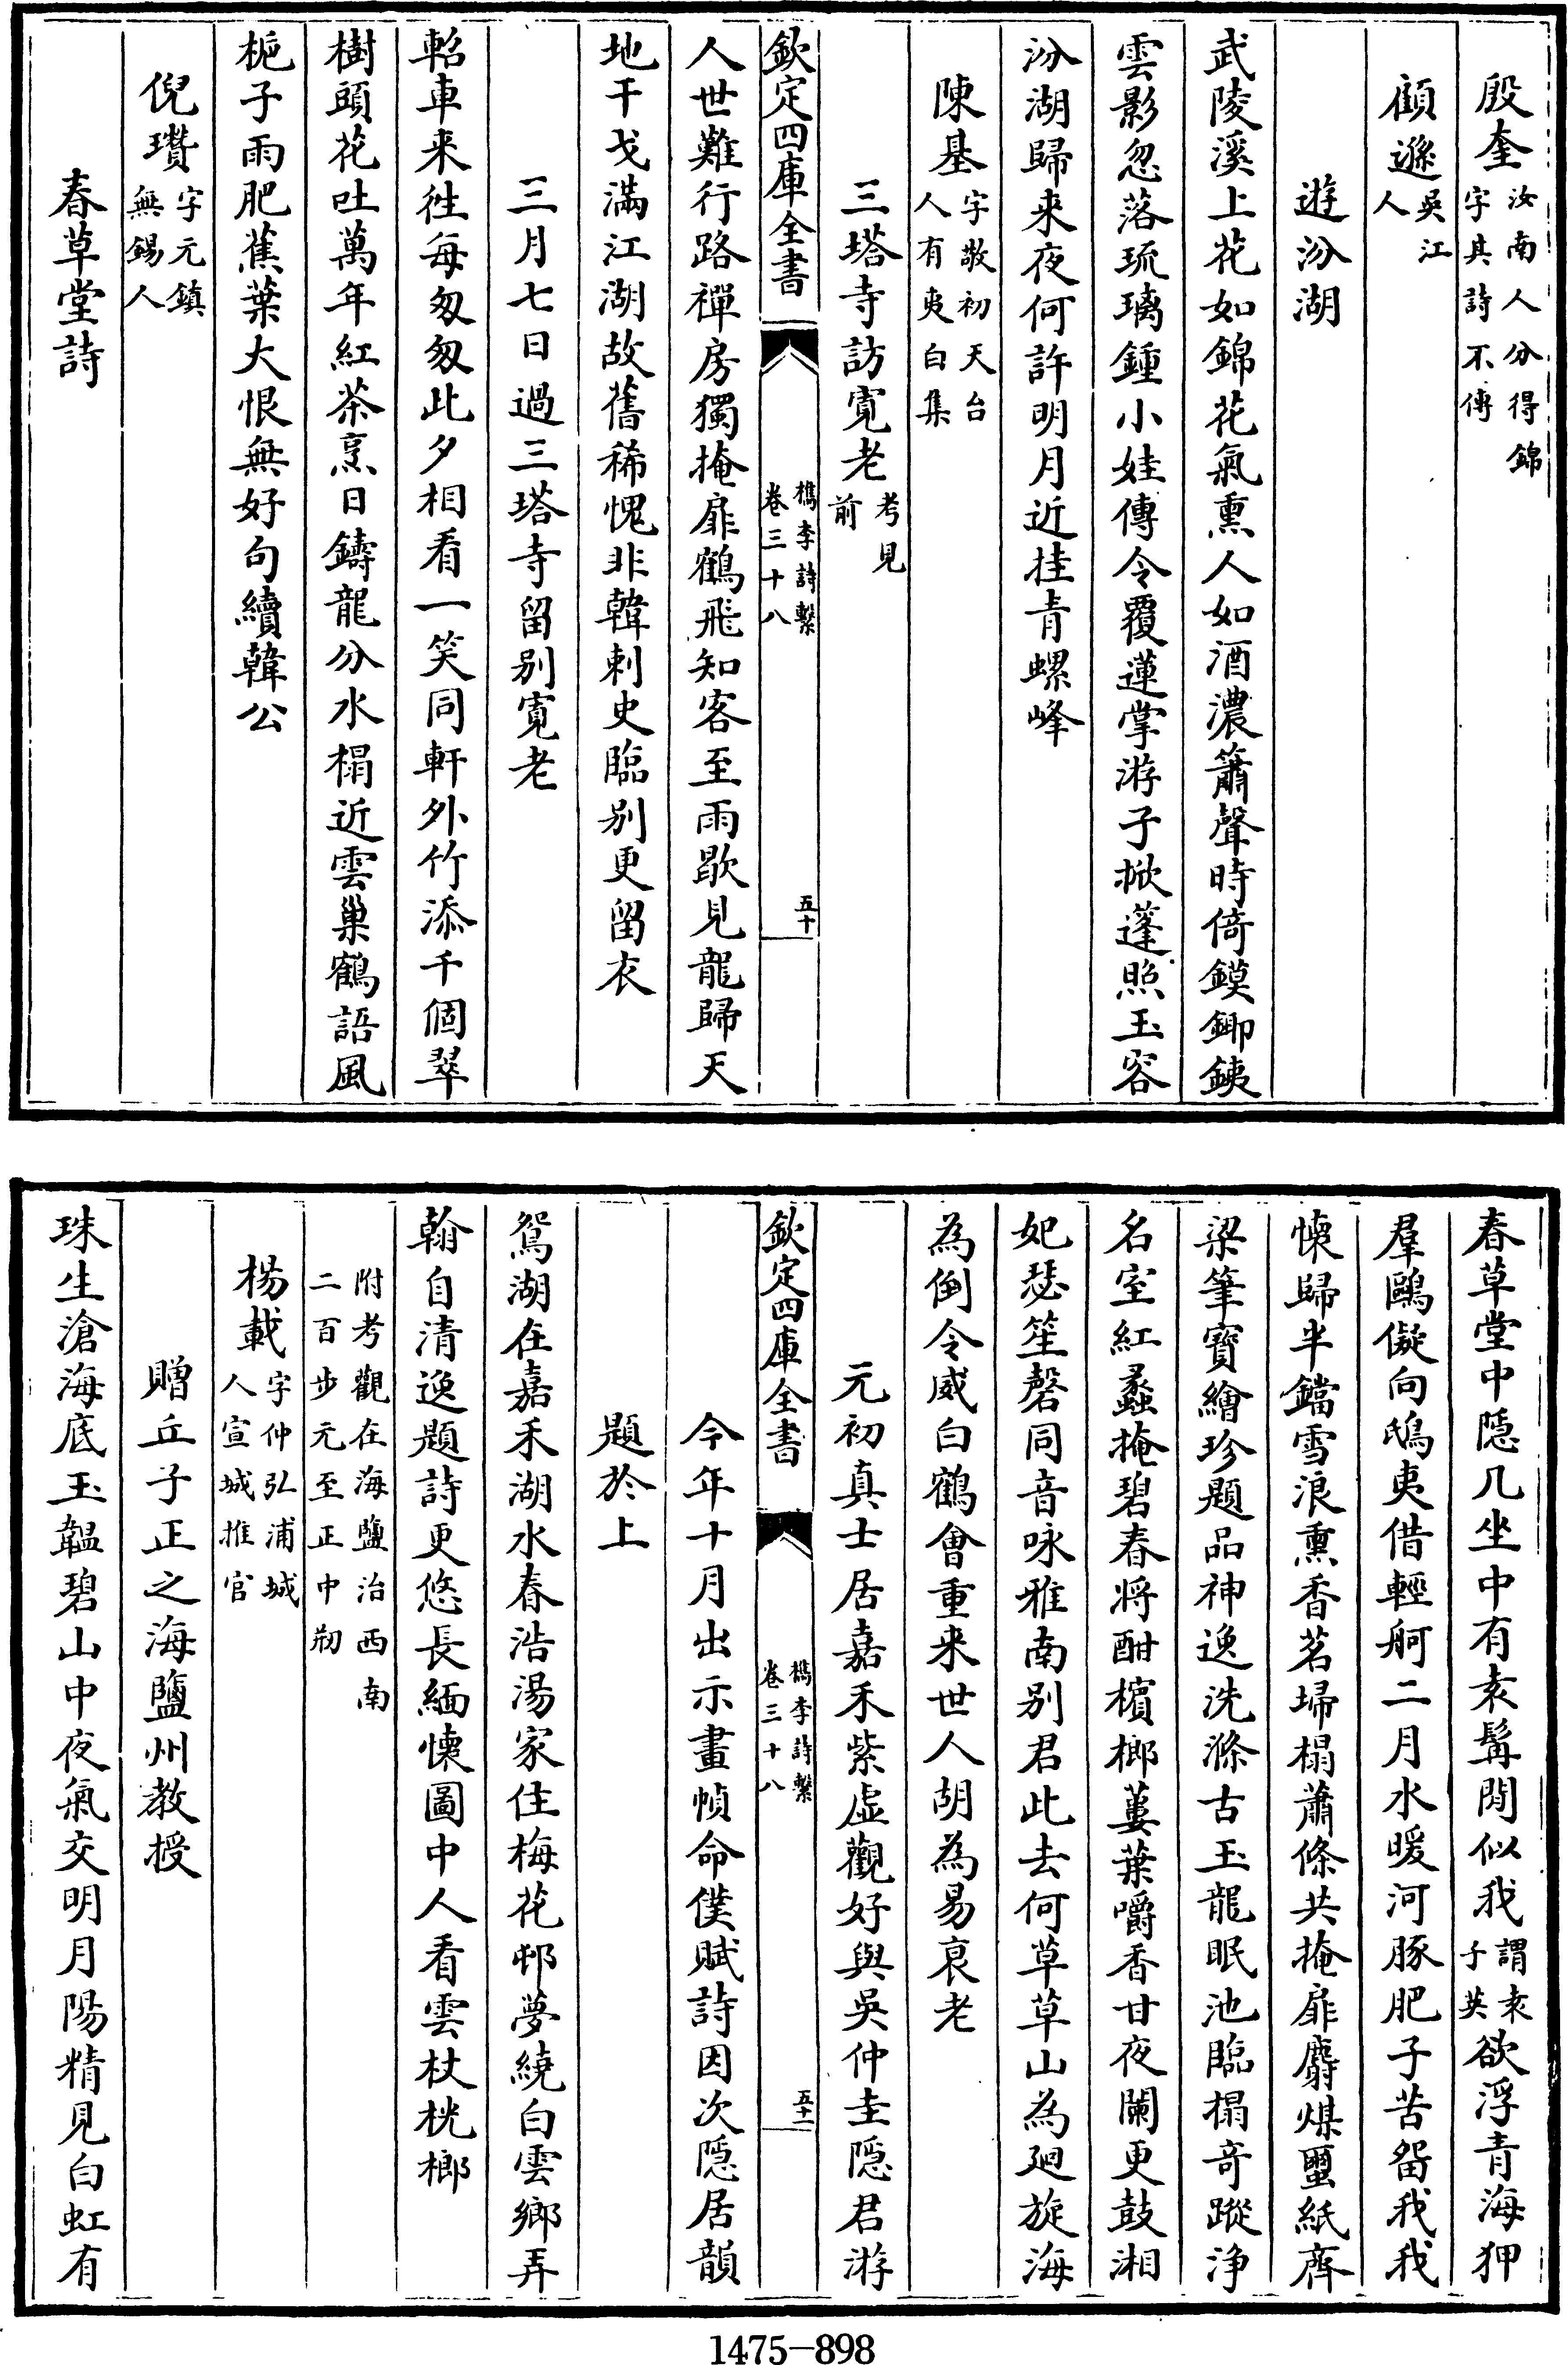 殷奎汝南人分得錦
字其詩不傳
顧遜吳江
人
遊汾湖
武陵溪上花如錦花氣熏人如酒濃簫聲時倚鏌鎁鋏
雲影忽落琉璃鍾小娃傳令覆蓮掌游子掀蓬照玉容
汾湖歸来夜何許明月近挂青螺峰
陳基字敬初天台
人有夷白集
三塔寺訪寛老考見
前
欽定四庫全書
檇李詩繫
卷三十八
五十
人世難行路禪房獨掩扉鶴飛知客至雨歇見龍歸天
地干戈滿江湖故舊稀愧非韓刺史臨别更留衣
三月七日過三塔寺留别寛老
軺車来徃每匆匆此夕相看一笑同軒外竹添千個翠
樹頭花吐萬年紅茶烹日鑄龍分水榻近雲巢鶴語風
梔子雨肥蕉葉大恨無好句續韓公
倪瓚字元鎮
無錫人
春草堂詩
春草堂中隠几坐中有袁髯閒似我謂袁
子英欲浮青海狎
羣鷗儗向鴟夷借輕舸二月水暖河豚肥子苦留我我
懐歸半鐺雪浪熏香茗埽榻蕭條共掩扉麝煤璽紙齊
梁筆寶繪珍題品神逸洗滌古玉龍眠池臨搨奇蹤浄
名室紅蠡掩碧春将酣檳榔蔞葉嚼香甘夜闌更鼓湘
妃瑟笙磬同音咏雅南别君此去何草草山為廻旋海
為倒令威白鶴會重来世人胡為易哀老
元初真士居嘉禾紫虚觀好與吳仲圭隠君游
欽定四庫全書
檇李詩繫
卷三十八
五十一
今年十月出示畫幀命僕賦詩因次隠居韻
題於上
鴛湖在嘉禾湖水春浩湯家住梅花邨夢繞白雲鄉弄
翰自清逸題詩更悠長緬懐圖中人看雲杖桄榔
附考觀在海鹽治西南
二百步元至正中剏
楊載字仲弘浦城
人宣城推官
贈丘子正之海鹽州教授
珠生滄海底玉韞碧山中夜氣交明月陽精見白虹有
1475-898